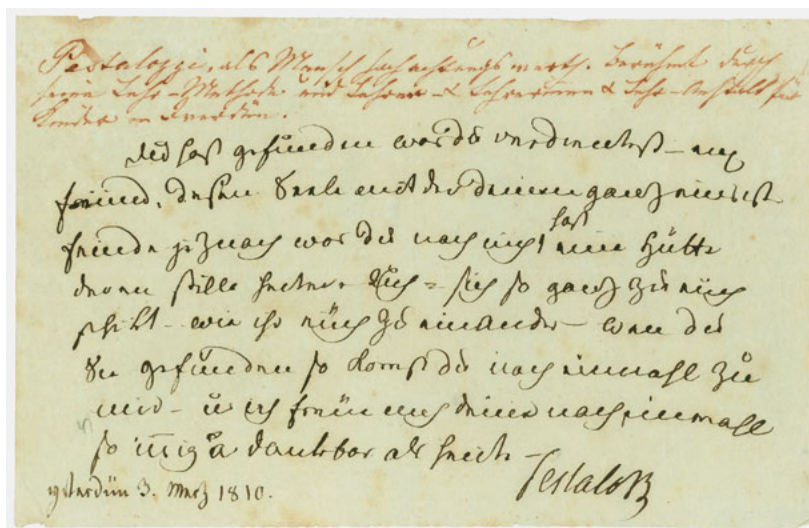 Pestalozzi, als Mensch hochachtungswerth. Berühmt durch
seine Lehr-Methode und Lehrer- & Lehrerinnen & Lehr-Anstalt für
Kinder in Iverdün.
du hast gefunden was du verdientest – ein
freund, dessen Seele mit der deinen ganz eins ist
finde jez noch was du noch nicht hast eine Hütte
deren stille heitere Ruh – sich so ganz zu euch
schikt – wie ihr euch zu einander – wen du
Sie gefunden so komst du noch einmahl zu
mir – u ich freüe mich deiner noch einmahl
so innig u dankbar als heute –
yverdün 3. Merz 1810.
Pestalozzi